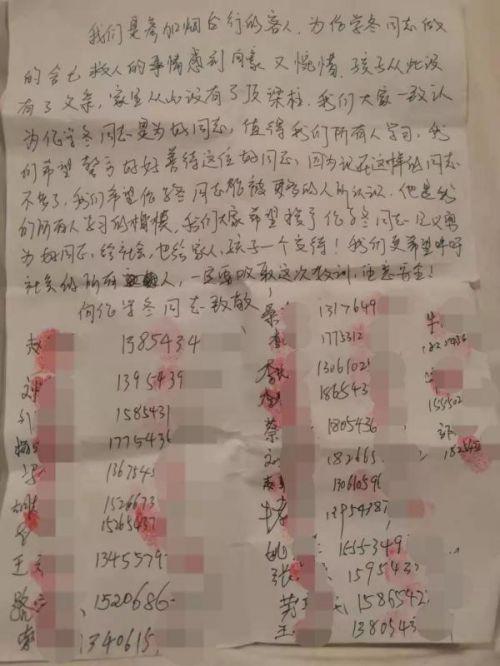 我们是参加烟台行的客人，为伦学冬同志做
的舍己救人的事情感到自豪又惋惜，孩子从此没
有了父亲，家里从此没有了顶梁柱，我们大家一致认
为伦学冬同志是为好同志，值得我们所有人学习，我
们希望警方好好善待这位好同志，因为现在这样的同志
不多了，我们希望伦学冬同志能被更多的人所认识，他是我
们所有人学习的楷模，我们大家希望授予伦学冬同志见义勇
为好同志，给社会，也给家人，孩子一个交待！我们更希望呼吁
社会的所有人，一定要吸取这次教训，注意安全！
向伦学冬同志致敬，
赵 1385434
刘 1395439
1585431
杨 1775436
1367545
1526673
15265437
王 1345579
1520686
1340615
桑 1317649
1775312
李 1306102
186543
蔡 1805436
文 182665
13061059
1395438
姚 1555349
张 159543
1586542
王 138054
牛
155502
18254